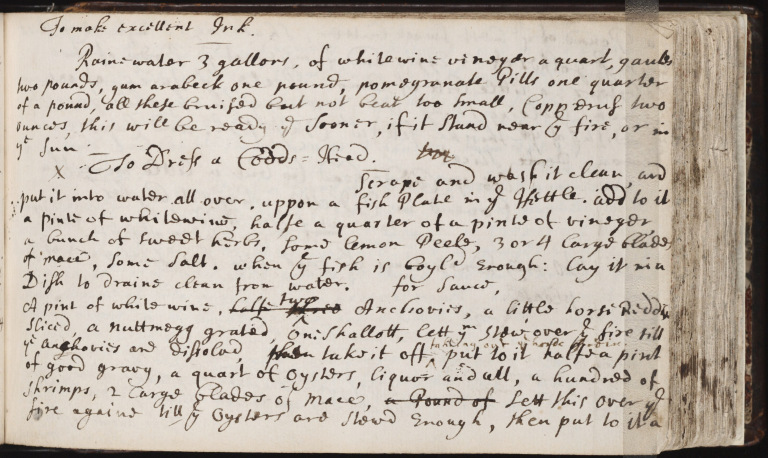 To make excellent Ink.
Raine water 3 gallons, of white wine vineger a quart, gaules
two pounds, gum arabeck one pound, pomegranate Pills one quarter
of a pound, all these bruised but not beat too small, Copperus two
ounces, this will be ready yͤ sooner, if it stand near yͤ fire, or in
yͤ sun.
X To Dress a Codds=Head.
Scrape and wash it clean, and
put it into water all over, uppon a fish Plate in yͤ Kettle. add to it
a pinte of whitewine, halfe a quarter of a pinte of vineger,
a bunch of sweet herbs, some lemon Peele, 3 or 4 large blades
of mace, some salt. when yͤ fish is boyld Enough: lay it in a
Dish to draine clean from water. for sauce,
A pint of white wine, halfe two three Anchovies, a little horse Reddish
sliced, a nuttmegg grated, One shallott, lett yͫ stew over yͤ fire till
yͤ anchovies are dissolvd, then take it off, put to it halfe a pint
takeing out yͤ horse
of good gravy, a quart of Oysters, liquor and all, a hundred of
shrimps, 2 large blades of mace, a Pound of Lett this over yͤ
fire againe till yͤ Oysters are stewd Enough, then put to it a